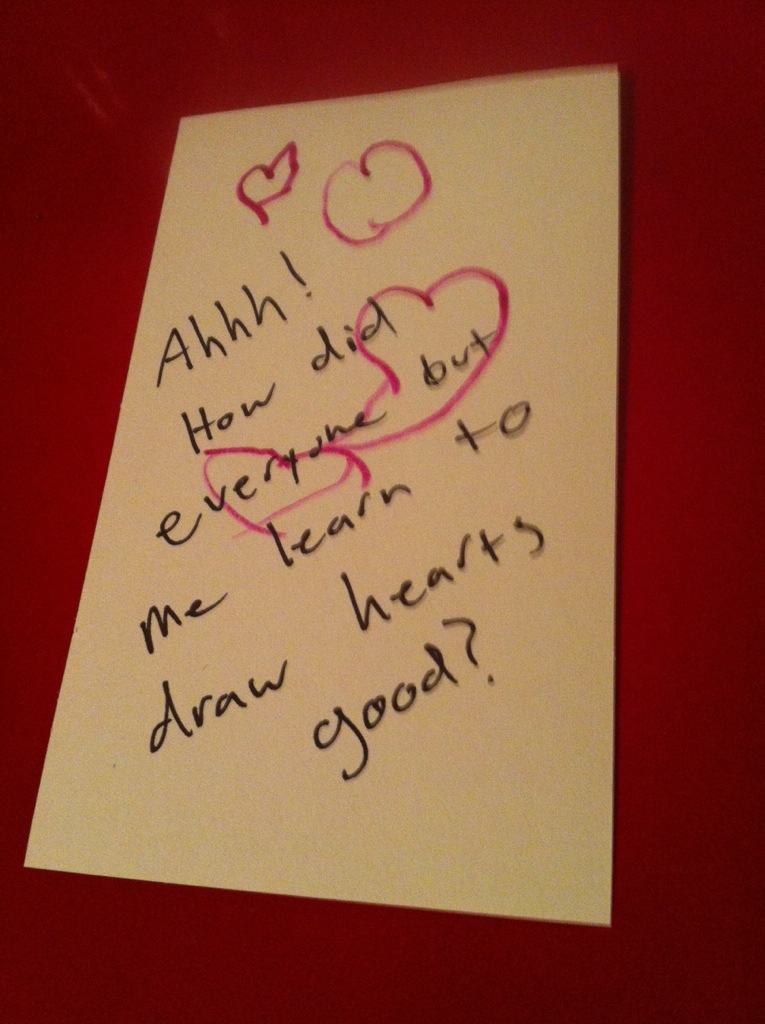 Ahhh!
How did
everyone but
me learn to
draw hearts
good?